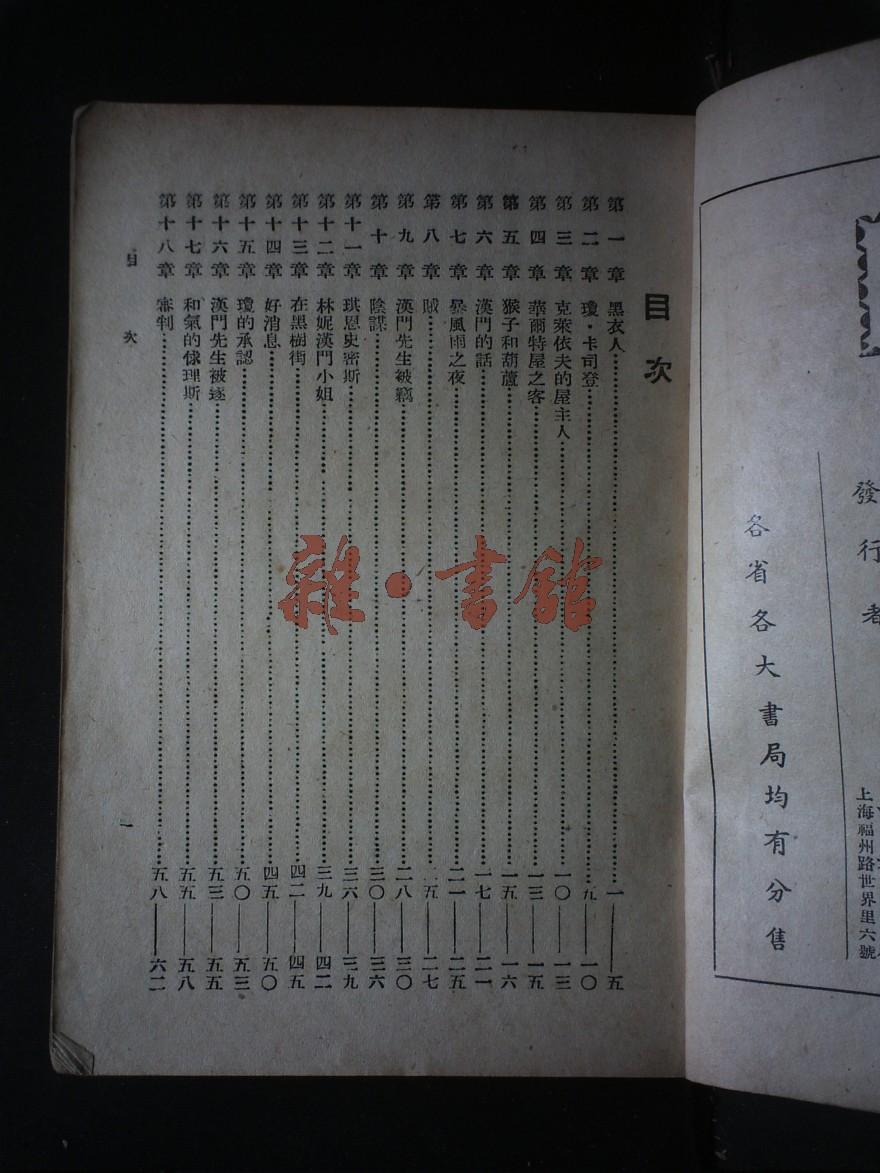 發行者
上海福州路世界里六號
各省各大書局均有分售
目次
第一章 黑衣人……一——五
第二章 瓊・卡司登……九——一〇
第三章 克萊依夫的屋主人……一〇——一三
第四章 華爾特屋之客……一三——一五
第五章 猴子和葫蘆……一五——一六
第六章 漢門的話……一七——二一
第七章 暴風雨之夜……二一——二五
第八章 賊……二五——二七
第九章 漢門先生被竊……二八——三〇
第十章 陰謀……三〇——三六
第十一章 琪恩史密斯……三六——三九
第十二章 林妮漢門小姐……三九——四二
第十三章 在黑樹街……四二——四五
第十四章 好消息……四五——五〇
第十五章 瓊的承認……五〇——五三
第十六章 漢門先生被逐……五三——五五
第十七章 和氣的理斯……五五——五八
第十八章 審判……五八——六二
目次
一
雜・書館